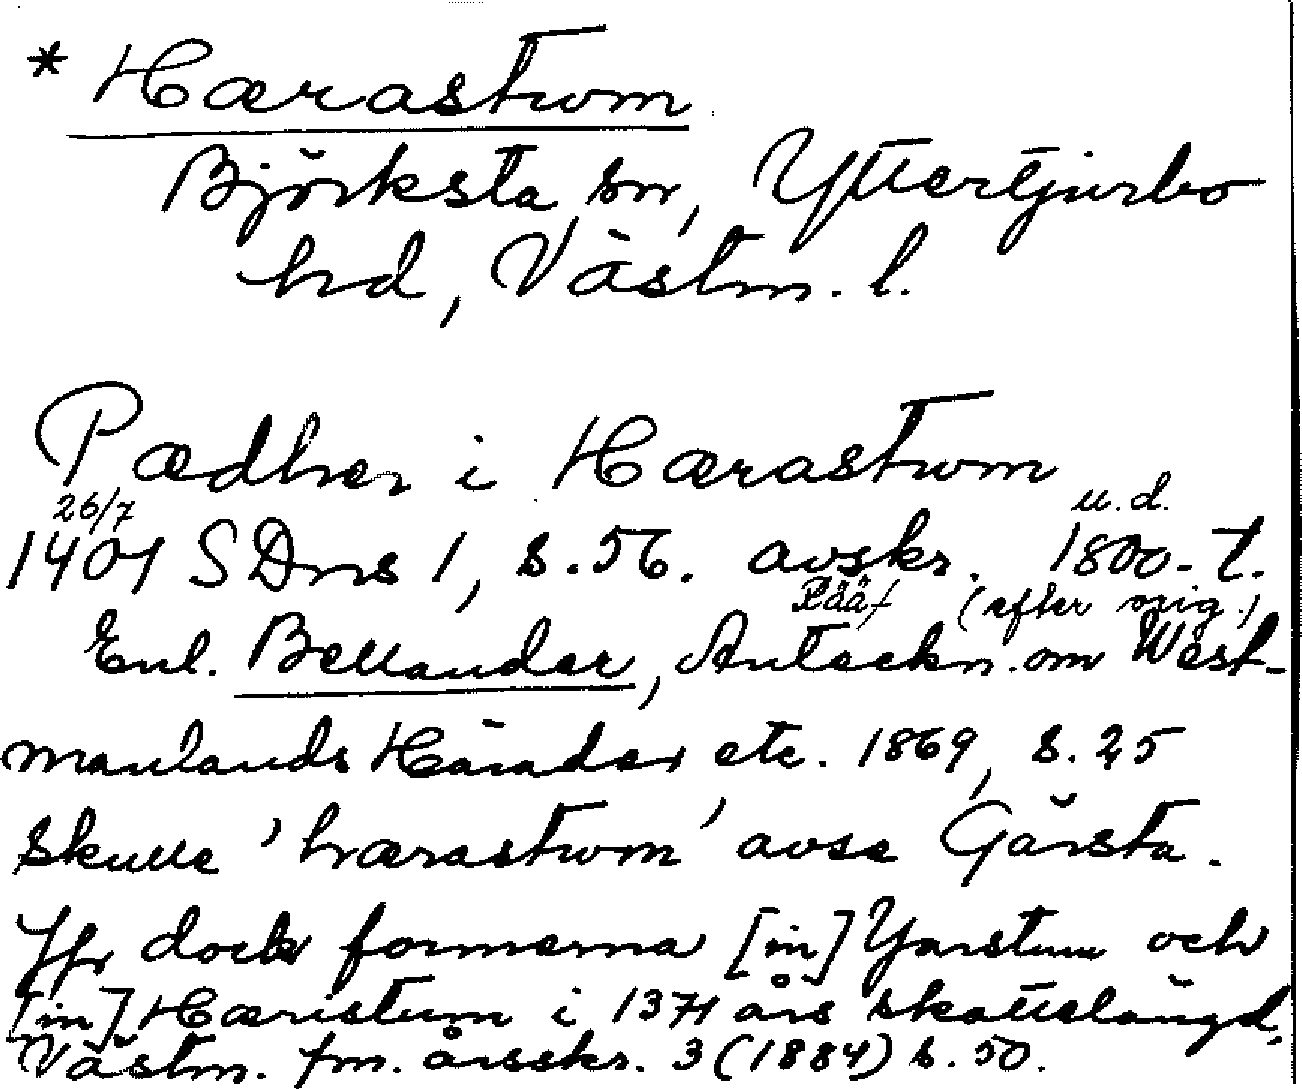 * Hærastwm
Björksta sn, Yttertjurbo
hd, Västm. l.
Pædher i Hærastwm
26/7 u.d.
1401 SDns 1, s. 56. avskr. 1800-t.
Rääf (efter orig.)
Enl. Bellander, Anteckn. om West-
manlands Härader etc. 1869, s. 25
skulle 'hærastwm' avse Gärsta.
Jfr dock formerna [in] Yarstum och
[in] Hæristum i 1371 års skattelängd,
Västm. fm. årsskr. 3 (1884) s. 50.